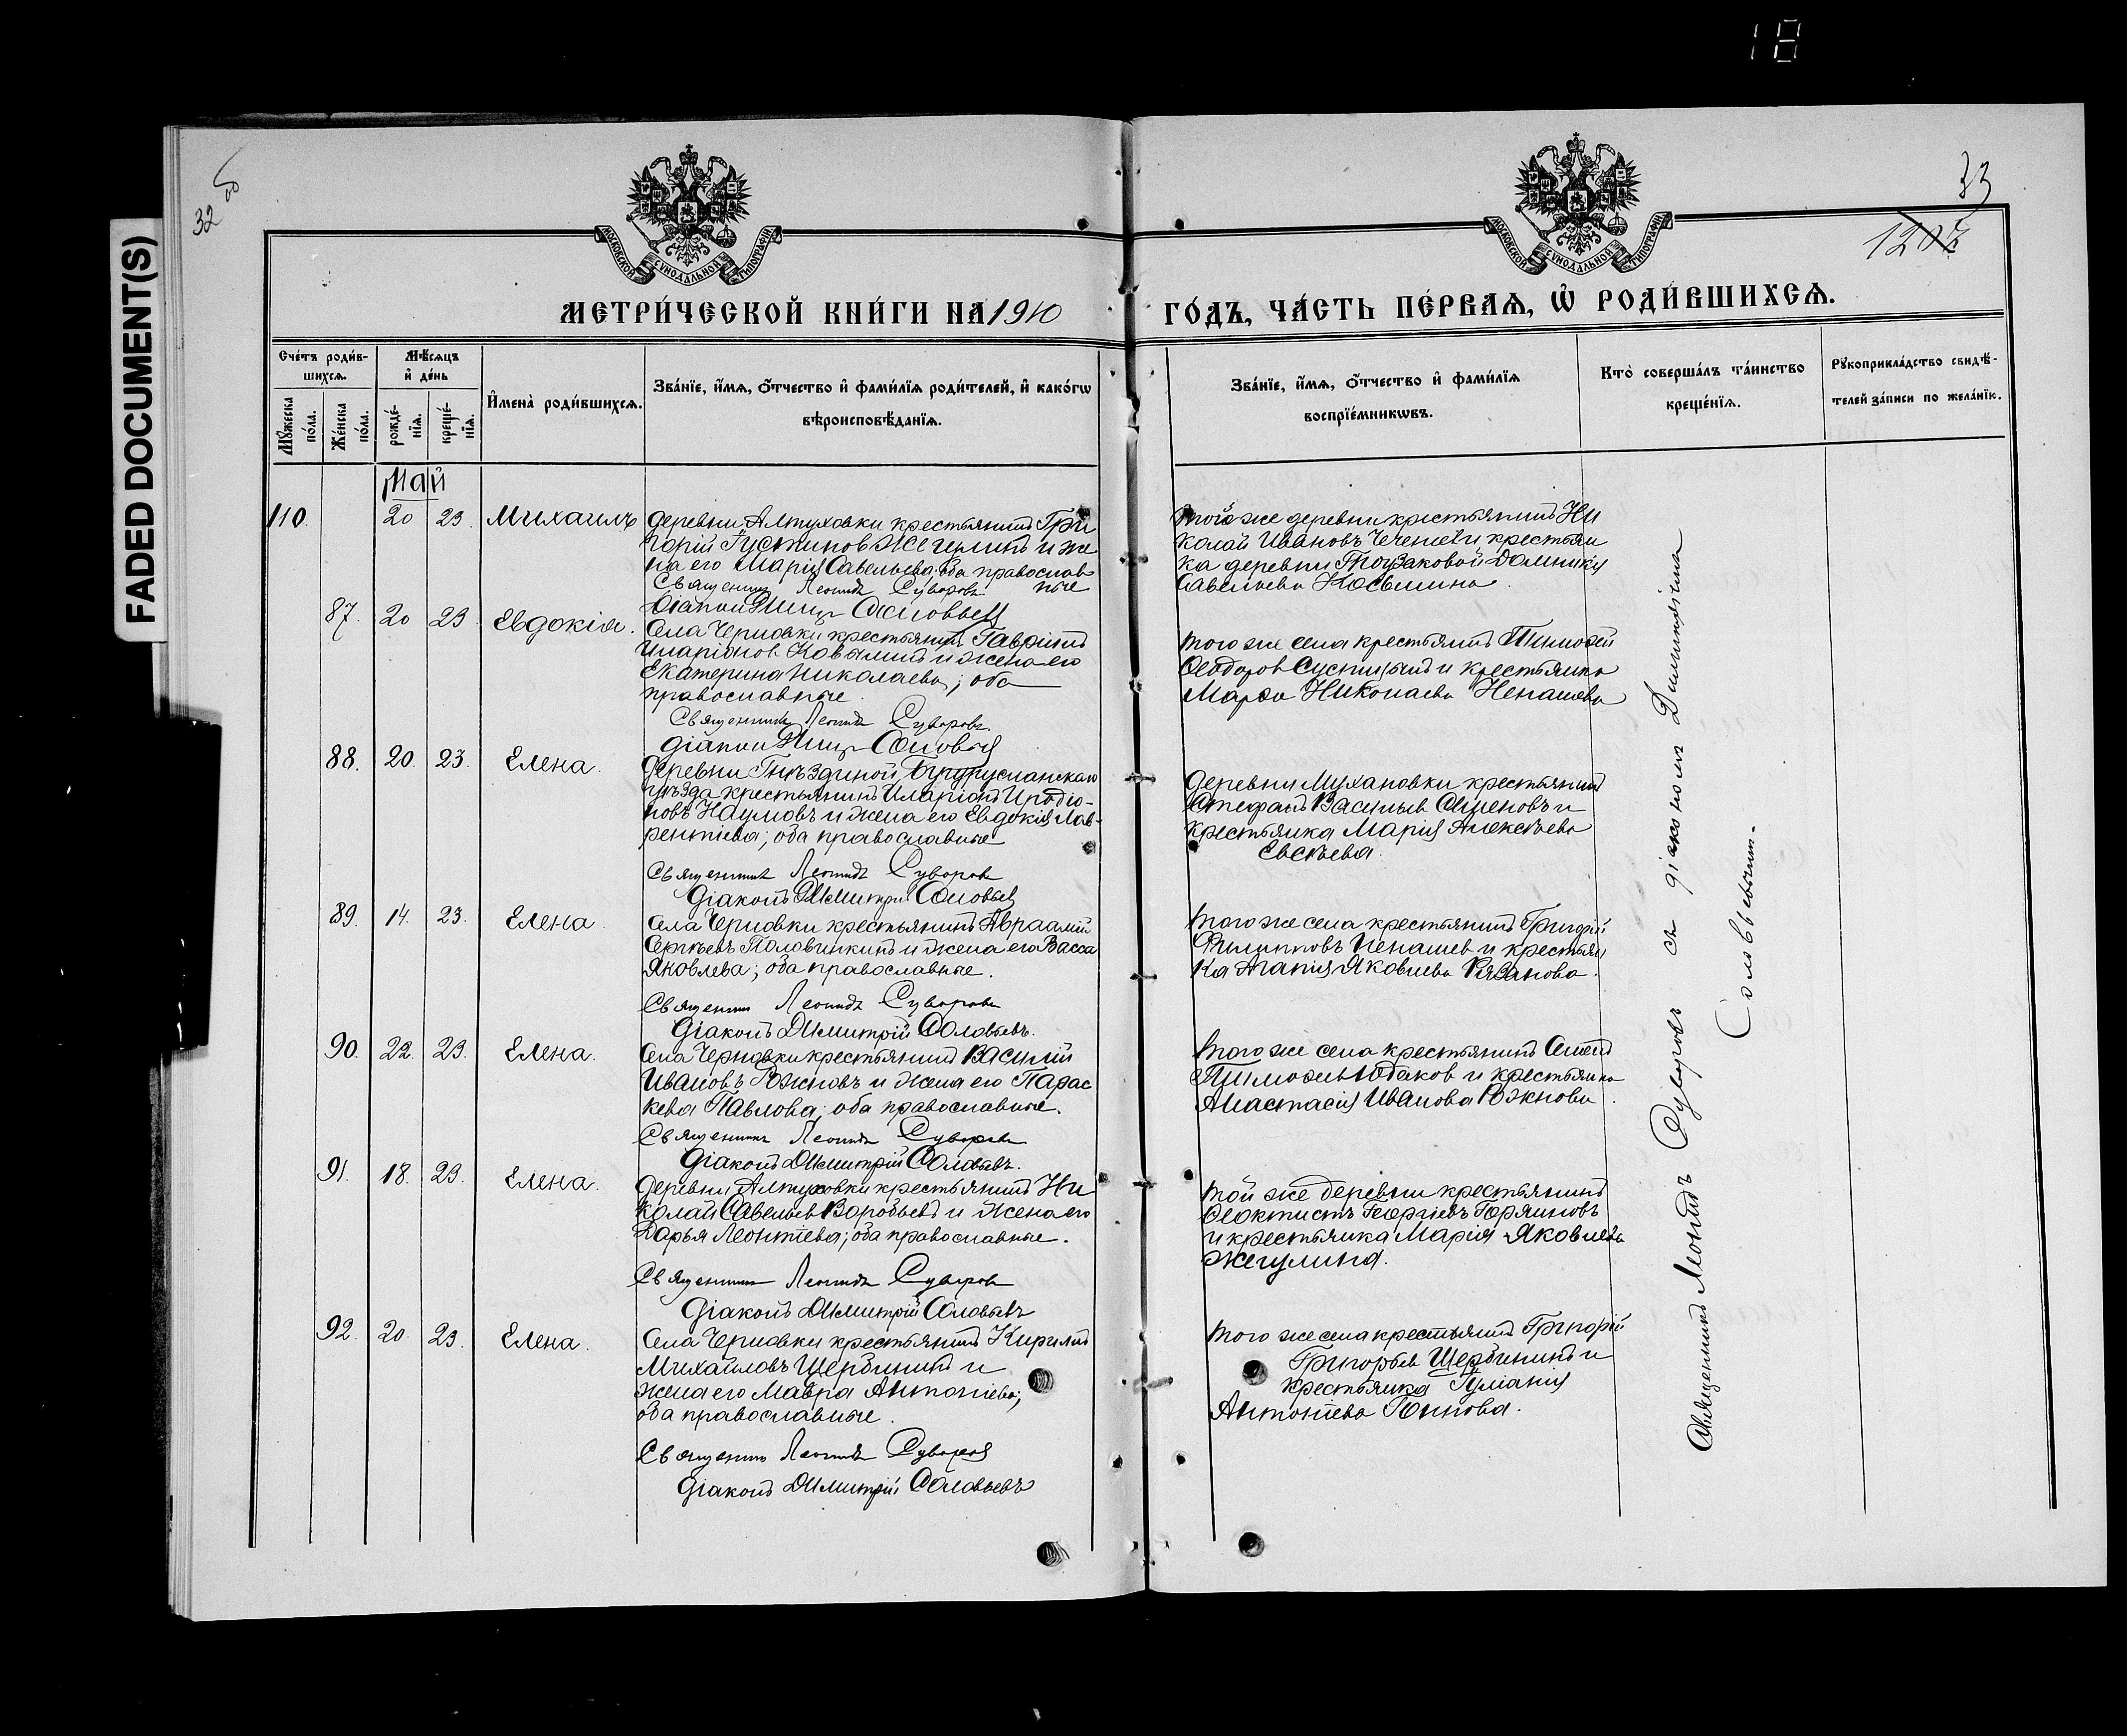 18
FADED DOCUMENT(S)
32
33
1207
МОСКОВСКОЙ СУНОДАЛЬНОЙ ТИПОГРАФІИ
МОСКОВСКОЙ СУНОДАЛЬНОЙ ТИПОГРАФІИ
МЕТРИ́ЧЕСКОЙ КНИ́ГИ НА 1910
ГО́ДЪ, ЧА́СТЬ ПЕ́РВАѦ, Ѡ҆ РОДИ́ВШИХСѦ.
Сче́тъ роди́в-
шихсѧ.
Мꙋ́жеска по́ла.
Же́нска по́ла.
Мѣ́сѧцъ
и҆ де́нь
рожде́-
нїѧ.
креще́-
нїѧ.
И҆мена̀ роди́вшихсѧ.
Зва́нїе, и҆́мѧ, ѻ҆́тчество и҆ фами́лїѧ роди́телей, и҆ како́гѡ
вѣроисповѣ́данїѧ.
Зва́нїе, и҆́мѧ, ѻ҆́тчество и҆ фами́лїѧ
воспрїе́мникѡвъ.
Кто̀ соверша́лъ та́инство
креще́нїѧ.
Рꙋкоприкла́дство свидѣ́-
телей за́писи по жела́нїю.
Май
110. 20 23. Михаилъ
деревни Алтуховки крестьянинъ Гри
горій Густинов Жегулинъ и же
на его Марія Савельева. Оба православ
ные
Священникъ Леонидъ Суворовъ
Діаконъ Соловьевъ
той же деревни крестьянинъ Ни
колай Ивановъ и крестьян
ка деревни Домникія
Савельева Косьмина.
87. 20 23 Евдокія.
Села Черновки крестьянинъ Гавріилъ
Иларіонов и жена его
Екатерина Николаева; оба
православные
Священникъ Леонидъ Суворовъ
Діаконъ Соловьевъ
того же села крестьянинъ Тимофей
Ѳеодоров и крестьянка
Марѳа Николаева Ненашева
88. 20. 23. Елена.
Деревни Гнѣздиной, Бугурусланскаго
уѣзда крестьянинъ Иларіонъ Иродіо-
новъ Наумовъ и жена его Евдокія Лав-
рентіева; оба православные
Священникъ Леонидъ Суворовъ
Діаконъ Димитрій Соловьев
Деревни Мухановки крестьянинъ
Стефанъ Васильев и
крестьянка Марія Алексѣева
Евсѣева.
89. 14. 23. Елена
Села Черновки крестьянинъ Авраамій
Сергѣевъ Половинкинъ и жена его Васса
Яковлева; оба православные.
Священникъ Леонидъ Суворовъ
Діаконъ Димитрій Соловьевъ.
того же села крестьянинъ Григорій
Филипповъ Ненашев и крестьян
ка Агапія Яковлева Рязанова.
90. 22. 23. Елена.
Села Черновки крестьянинъ Василій
Ивановъ Южновъ и жена его Парас
кева Павлова; оба православные.
Священникъ Леонидъ Суворовъ
Діаконъ Димитрій Соловьевъ.
того же села крестьянинъ
и крестьянка
Анастасія Иванова Южнова.
91. 18. 23. Елена.
Деревни Алтуховки крестьянинъ Ни
колай Савельев Воробьевъ и жена его
Дарья Леонтіева; оба православные.
Священникъ Леонидъ Суворовъ
Діаконъ Димитрій Соловьевъ
той же деревни крестьянинъ
Ѳеоктистъ Георгіевъ Горяиновъ
и крестьянка Марія Яковлева
Жегулина.
92. 20. 23. Елена.
Села Черновки крестьянинъ Кирилъ
Михайловъ Щербининъ и
жена его Мавра Антоніева;
оба православные.
Священникъ Леонидъ Суворовъ
Діаконъ Димитрій Соловьевъ
того же села крестьянинъ Григорій
Григорьев Щербининъ и
крестьянка Іуліанія
Антоніева
Священникъ Леонидъ Суворовъ съ діакономъ Димитріемъ
Соловьевымъ.